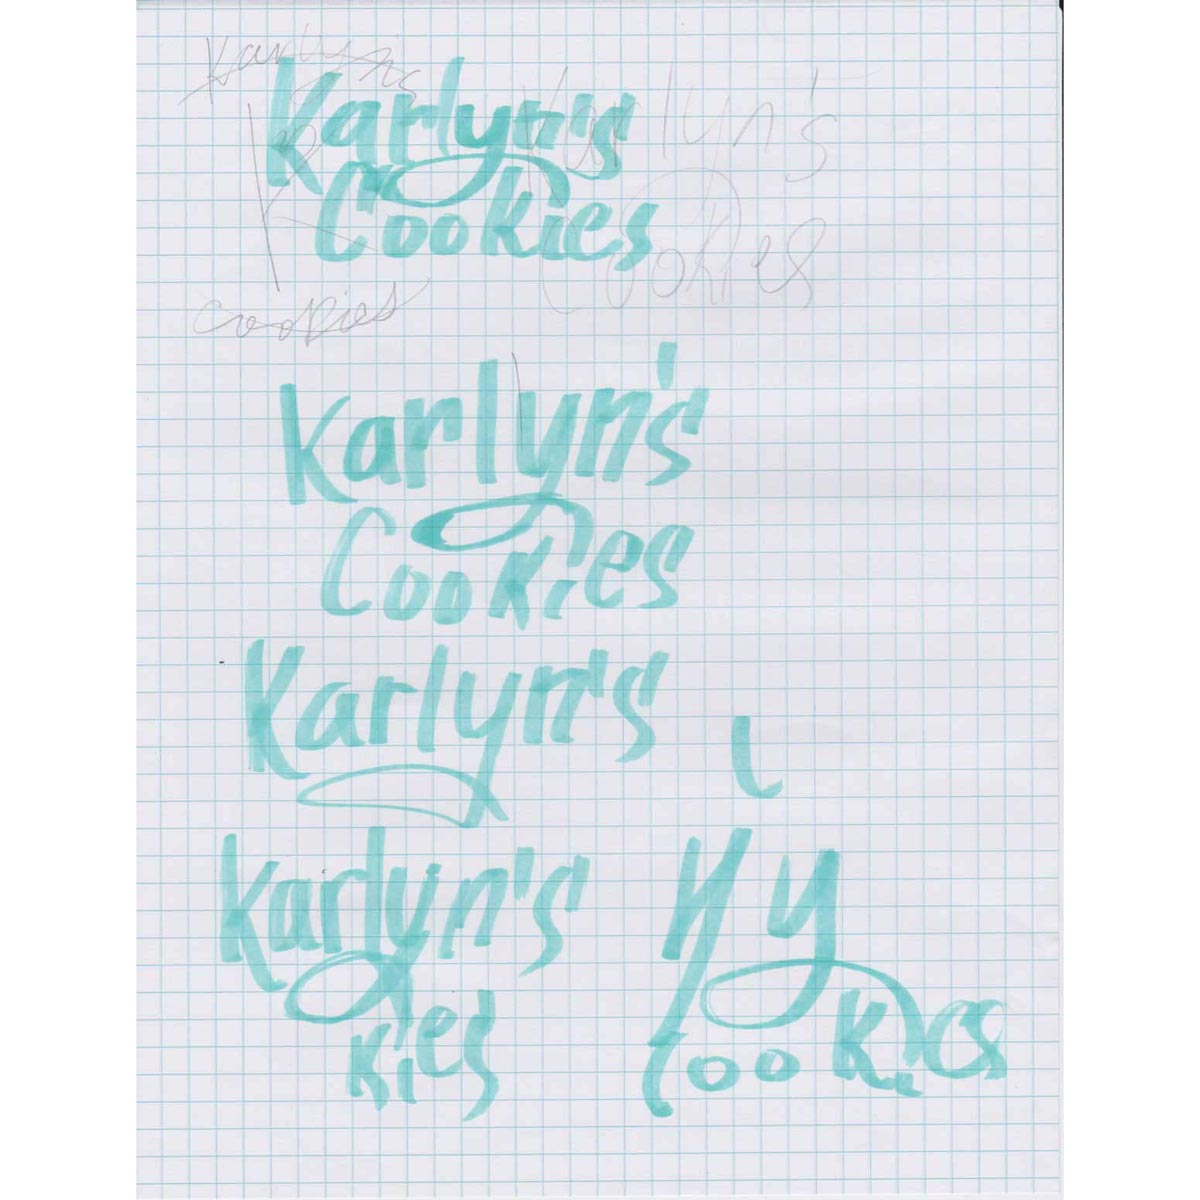 Karlyn's
Karlyn's
Cookies
Karlyn's
Cookies
cookies
Karlyn's
Cookies
Karlyn's
Karlyn's
kies
y
ookies